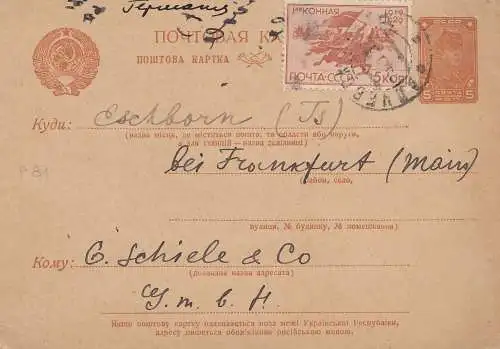 Германия
ПОЧТОВАЯ КА
ПОШТОВА КАРТКА
1ая КОННАЯ
1919
1929
ПОЧТА СССР
5 КОП.
5 5
Куди: Eschborn (Ts)
(назва місця, де міститься пошта, та області або округи,
а для станцій – назва залізниці)
bei Frankfurt (Main)
район, село,
вулиця, № будинку, № помешкання)
P 81
Кому: G. Schiele & Co
(докладна назва адресата)
G. m. b. H.
Якщо поштову картку адресовається поза межі Української Республіки,
адресу пишеться обов'язково російською мовою.